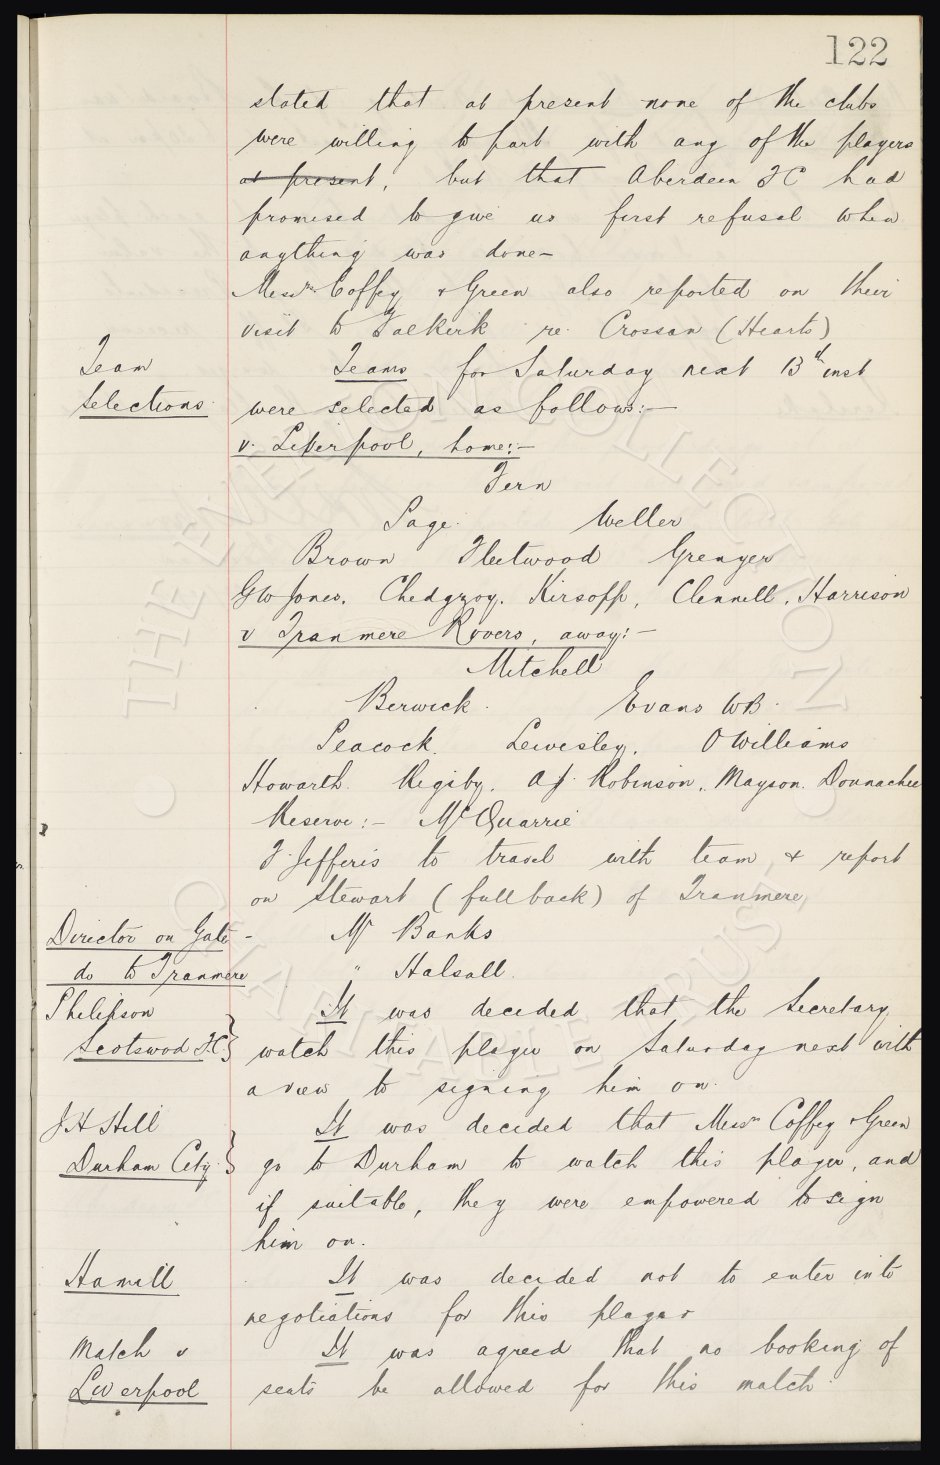 122
stated that at present none of the clubs
were willing to part with any of the players
at present, but that Aberdeen FC had
promised to give us first refusal when
anything was done -
Messrs Coffey & Green also reported on their
visit to Falkirk re Crossan (Hearts)
Team
Selections.
Teams for Saturday next 13th inst
were selected as follows:-
v. Liverpool, home:-
Fern
Page. Weller
Brown Fleetwood Grenyer
GW Jones. Chedgzoy. Kirsopp, Clennell, Harrison
v Tranmere Rovers, away:-
Mitchell
Berwick. Evans WB.
Peacock. Lewisley, O Williams
Howarth. Rigsby. AJ Robinson, Mayson. Donnachie
Reserve:- McQuarrie
F Jefferis to travel with team & report
on Stewart (full back) of Tranmere
Director on Gate - Mr Banks
do to Tranmere " Halsall.
Philipson
Scotswod FC
It was decided that the Secretary
watch this player on Saturday next with
a view to signing him on.
JH Hill
Durham City.
It was decided that Messrs Coffey & Green
go to Durham to watch this player, and
if suitable, they were empowered to sign
him on.
Hamill
It was decided not to enter into
negotiations for this player
Match v
Liverpool
It was agreed that no booking of
seats be allowed for this match.
THE EVERTON COLLECTION
CHARITABLE TRUST